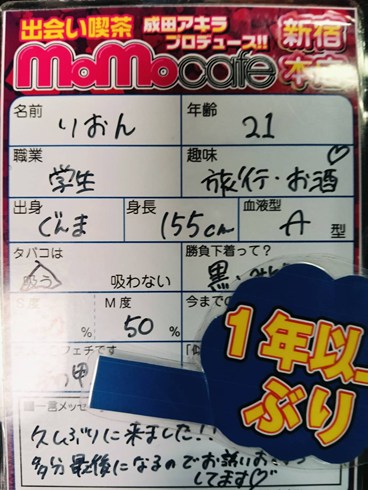 出会い喫茶 成田アキラ
プロデュース!!
MoMocafe 新宿
本店
名前 りおん 年齢 21
職業 学生 趣味 旅行・お酒♡
出身 ぐんま 身長 155cm 血液型 A 型
タバコは 吸う 吸わない 勝負下着って? 黒
% M度 50% 今までの
フェチです
1年以上
ぶり
一言メッセ
久しぶりに来ました!!
多分最後になるのでお誘いお
してます♡